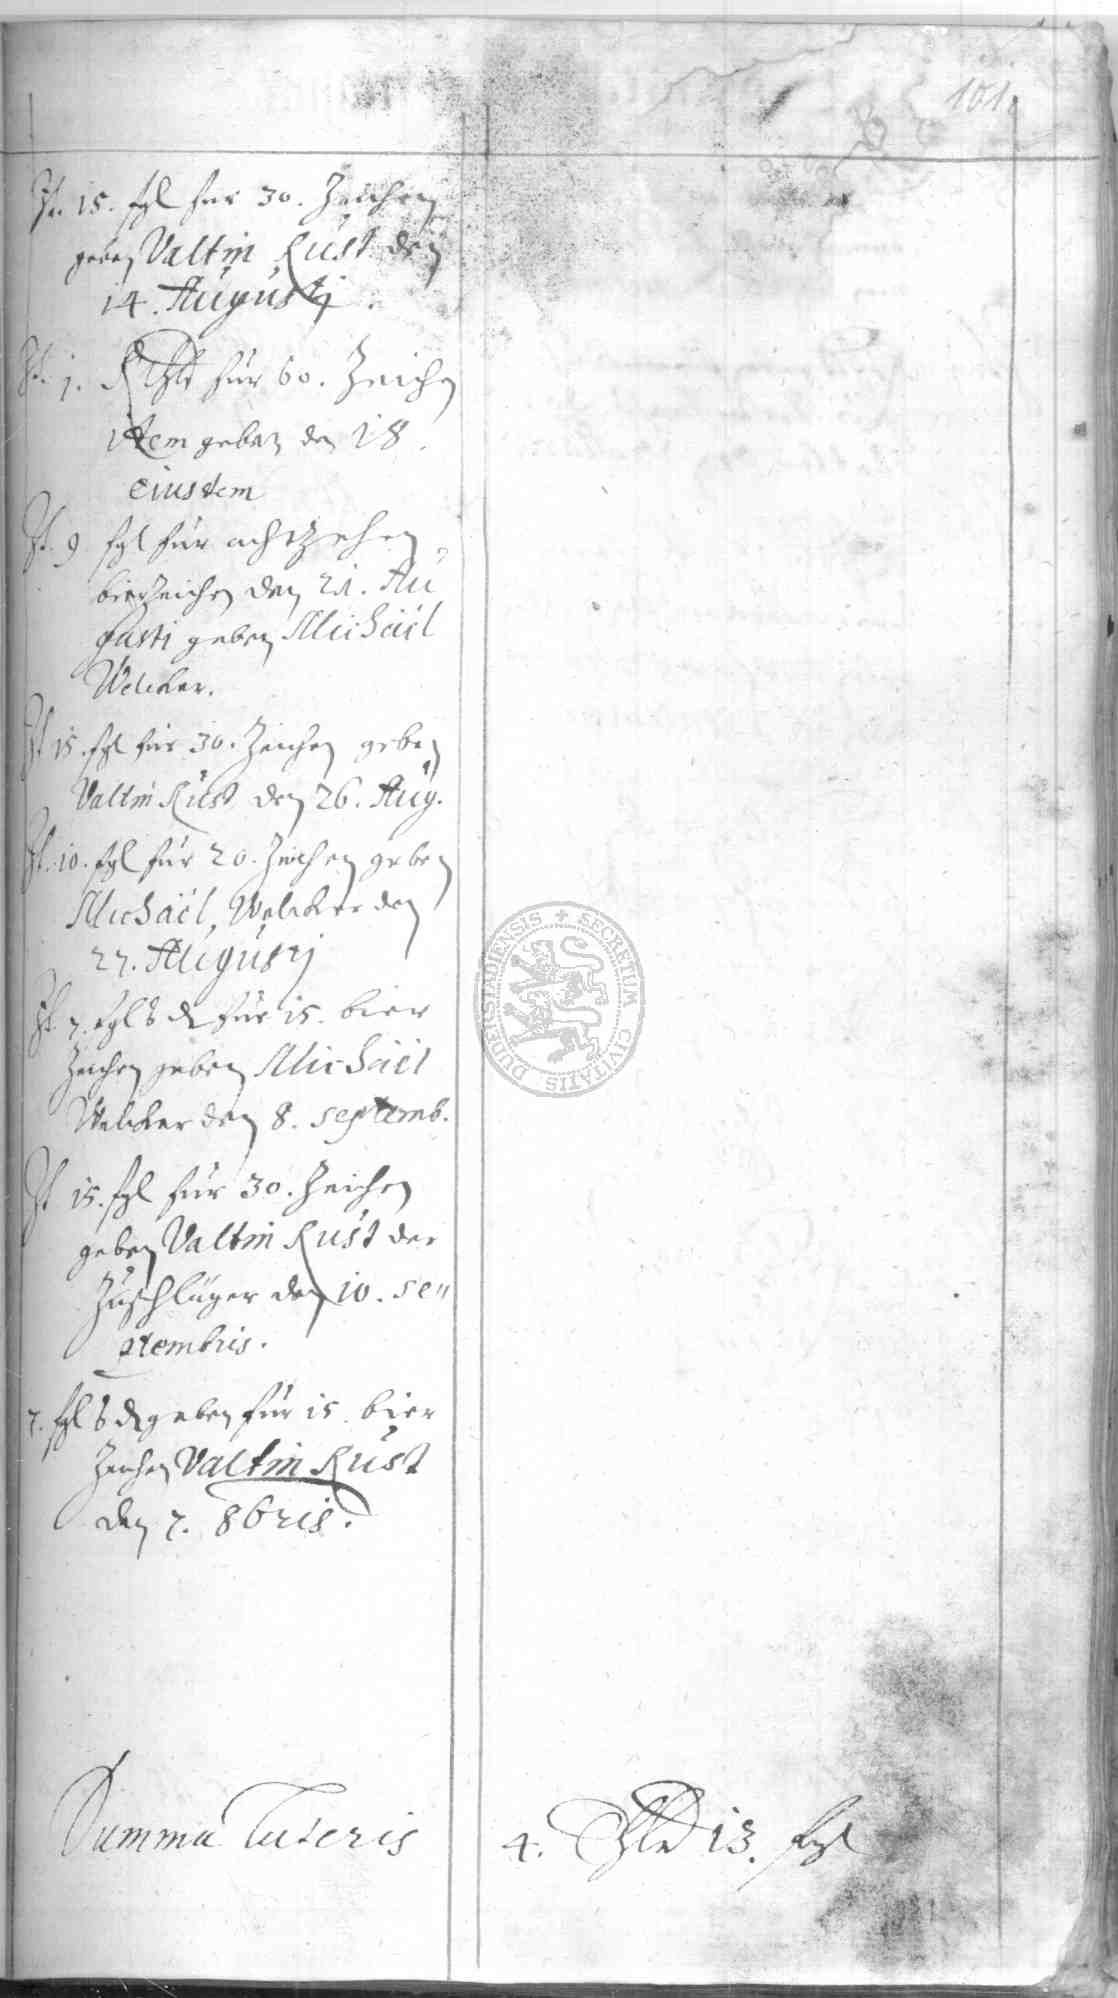 101.
It. 15. fgl für 30. Zeichen
geben Valtin Rust den
14. Augustj.
It. 1. Rthlr für 60. Zeichen
item geben den 18.
eiusdem
It. 9 fgl für achtzehen
bierzeichen den 21. Au
gusti geben Michäel
Welcker.
It 15. fgl für 30. Zeichen geben
Valtin Rust den 26. Aug.
It. 10. fgl für 20. Zeichen geben
Michäel Welcker den
27. Augustj
It. 7. fgl 6 d für 15. bier
Zeichen geben Michäel
Welcker den 8. septemb.
It 15. fgl für 30. Zeichen
geben Valtin Rust der
Zuschläger den 10. se,,
ptembris.
7. fgl 6 d geben für 15. bier
Zeichen Valtin Rust
den 7. 8bris.
Summa Lateris 4. Thlr 13. fgl
SECRETUM CIVITATIS DUDERSTADIENSIS